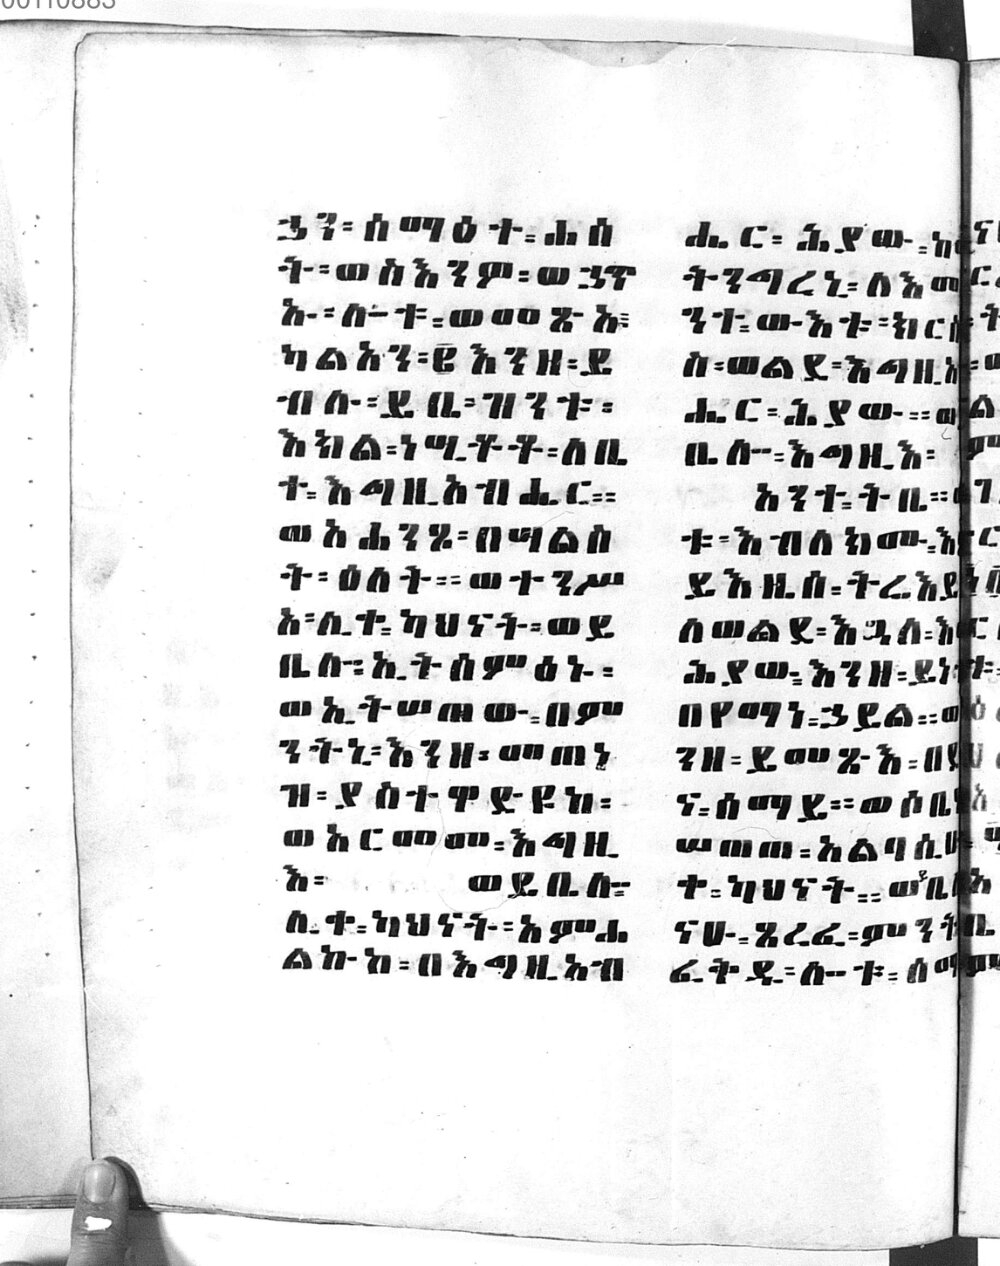 00110883
ኃን፡ ሰማዕተ፡ ሐሰ
ት፡ ወስእንም፡ ወኃጥ
ኡ፡ ሎቱ፡ ወመጽኡ፡
ካልአን፡ ፪ እንዘ፡ ይ
ብሉ፡ ይቤ፡ ዝንቱ፡
እክል፡ ነሢቶቶ፡ ለቤ
ተ፡ እግዚአብሔር።
ወአሐንጾ፡ በሣልስ
ት፡ ዕለት። ወተንሥ
አ፡ ሊቀ፡ ካህናት፡ ወይ
ቤሎ፡ ኢትሰምዕኑ፡
ወኢትሠጠዎ፡ በም
ንትኒ፡ እንዘ፡ መጠነ
ዝ፡ ያስተዋድዩከ፡
ወአርመመ፡ እግዚ
እ፡ ወይቤሎ
ሊቀ፡ ካህናት፡ አምሐ
ልኩከ፡ በእግዚአብ
ሔር፡ ሕያው፡
ትንግረኒ፡ ለእመ
ንተ፡ ውእቱ፡ ክርስ
ስ፡ ወልደ፡ እግዚአ
ሔር፡ ሕያው።
ቤሎ፡ እግዚእ፡
አንተ፡ ትቤ።
ቱ፡ እብለክሙ፡
ይእዜሰ፡ ትሬእይ
ለወልደ፡ እጓለ፡
ሕያው፡ እንዘ፡ ይነ
በየማነ፡ ኃይል።
ንዘ፡ ይመጽእ፡
ና፡ ሰማይ። ወሰቤ
ሠጠጠ፡ አልባሲሁ
ተ፡ ካህናት። ወይቤ
ናሁ፡ ጸረፈ፡ ምንት
ፈትዱ፡ ሎቱ፡ ሰማ